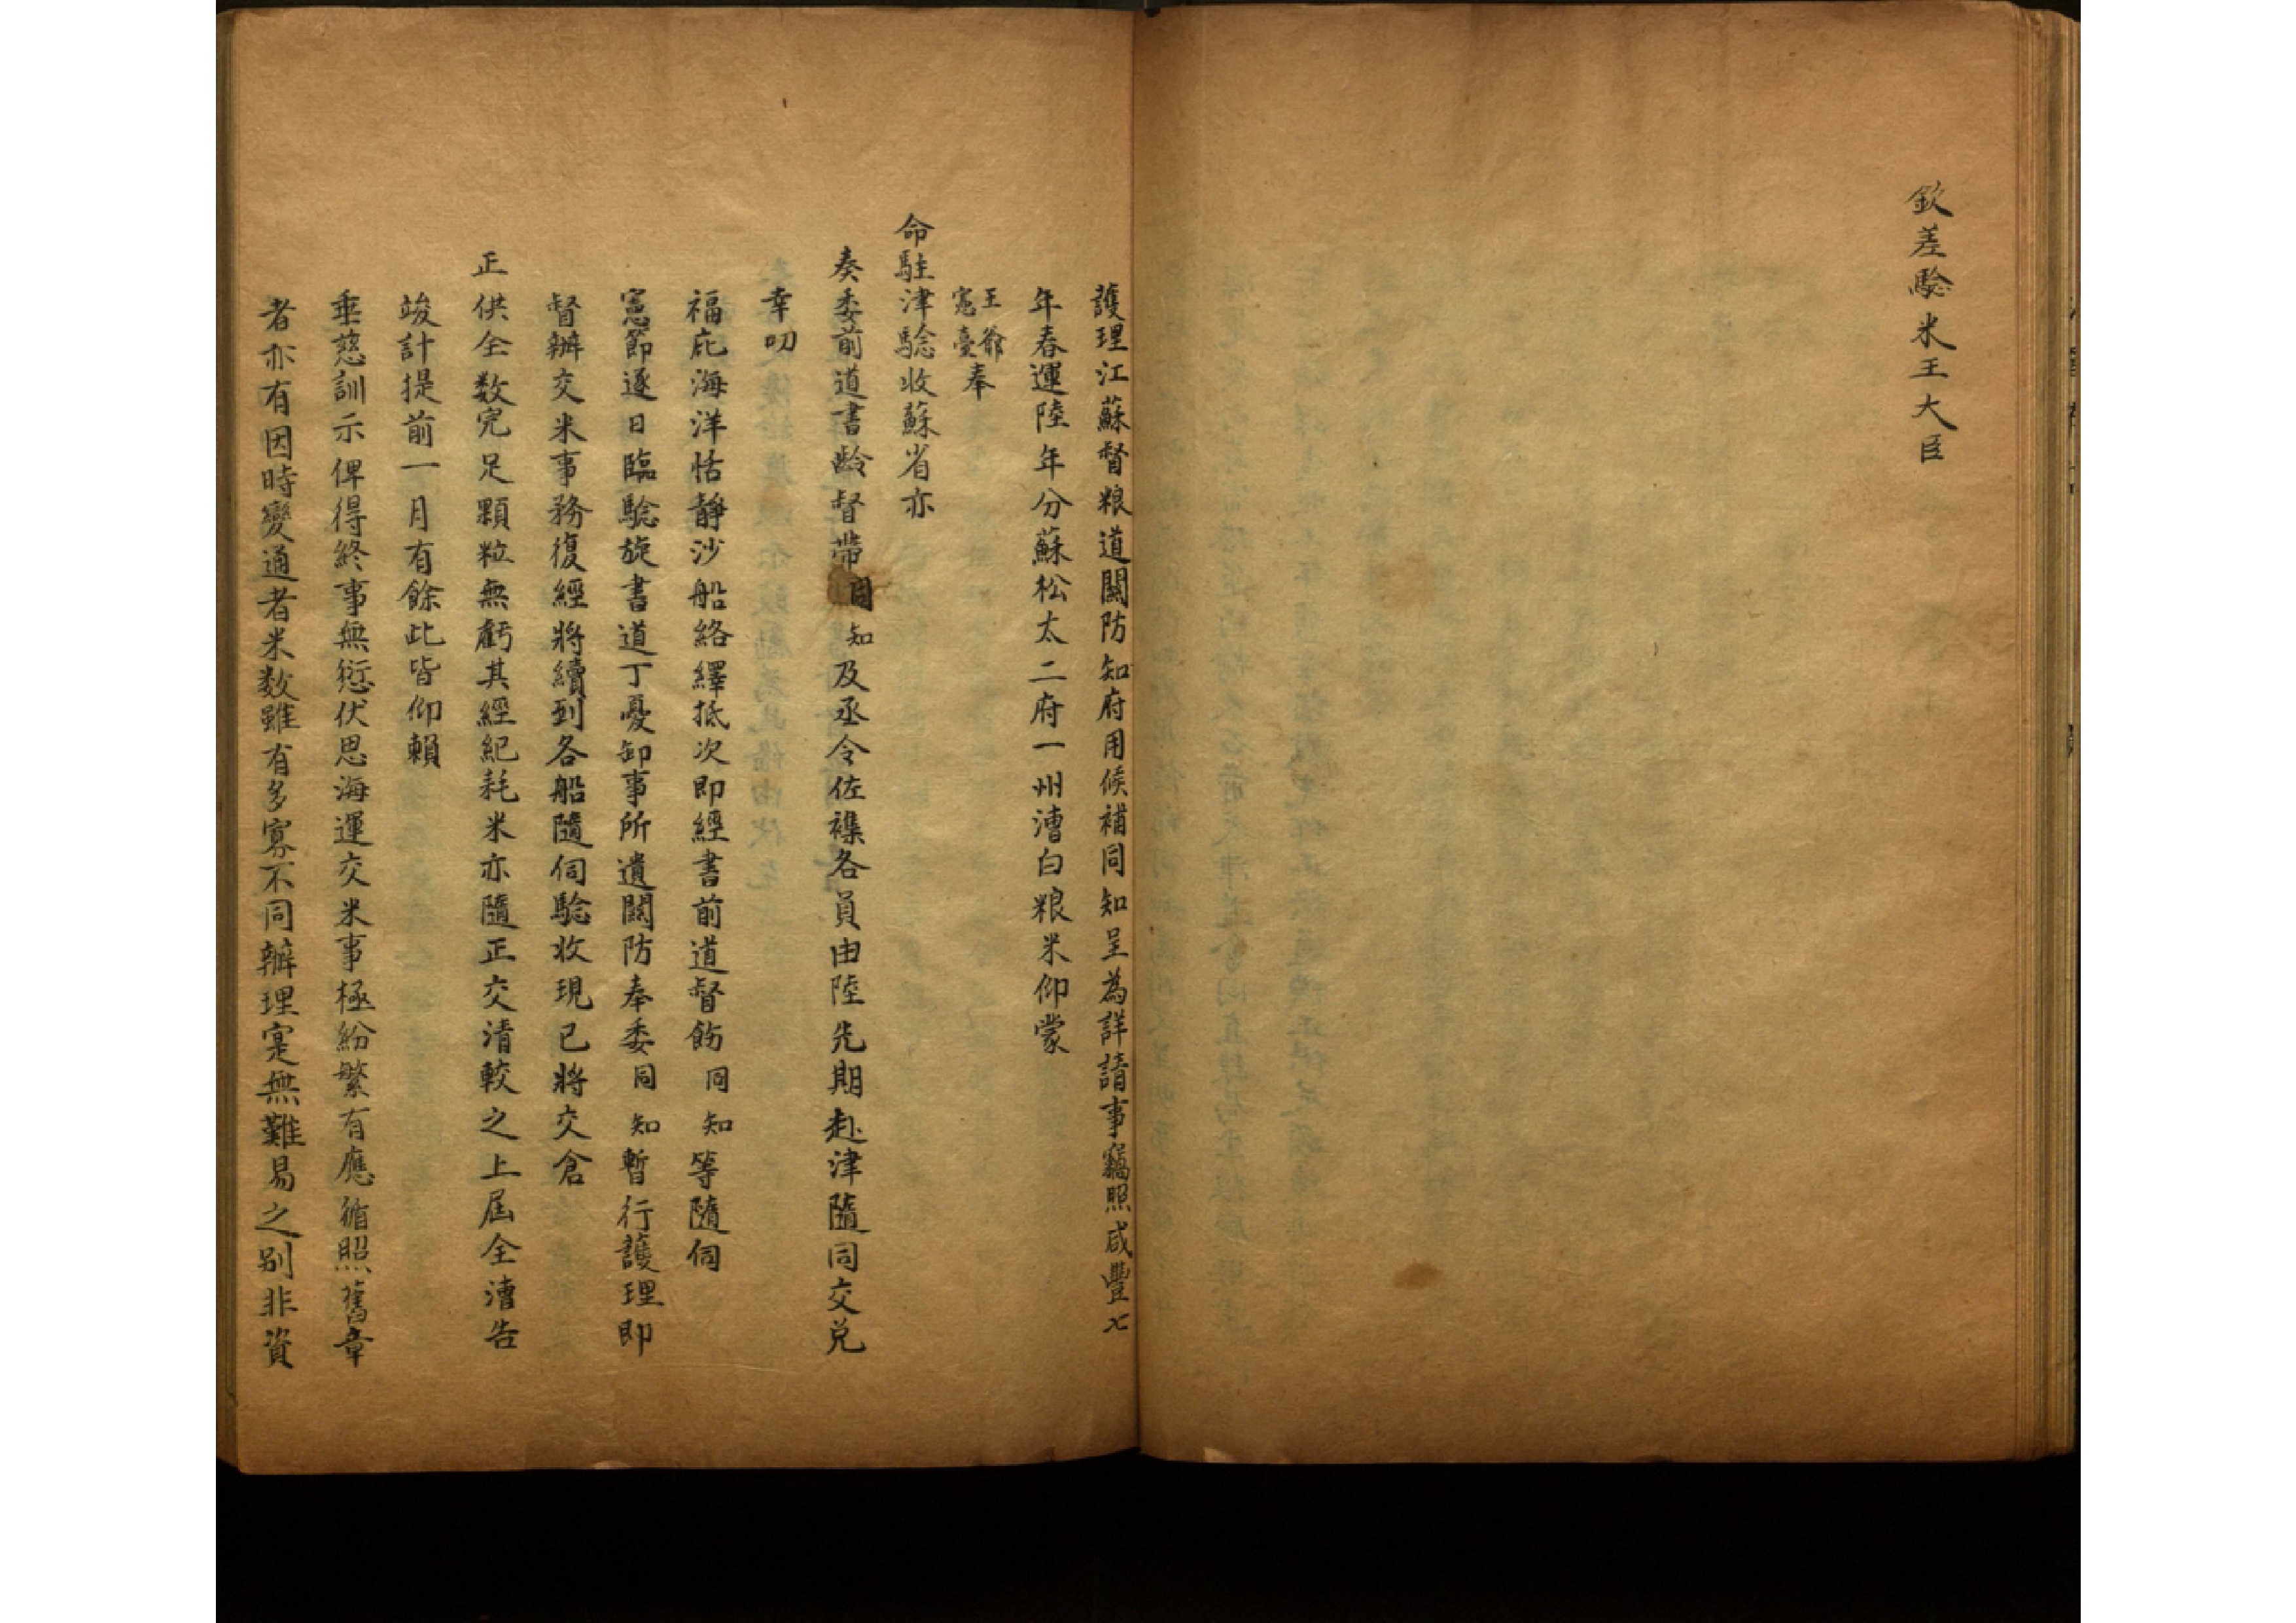 欽差驗米王大臣
護理江蘇督粮道關防知府用候補同知呈為詳請事竊照咸豐七
年春運陸年分蘇松太二府一州漕白粮米仰蒙
王爺憲臺奉
命駐津驗收蘇省亦
奏委前道書齡督帶同知及丞令佐襍各員由陸先期赴津隨同交兑
幸叨
福庇海洋恬靜沙船絡繹抵次即經書前道督飭同知等隨伺
憲節逐日臨驗旋書道丁憂卸事所遺關防奉委同知暫行護理即
督辦交米事務復經將續到各船隨伺驗收現已將交倉
正供全数完足顆粒無虧其經紀耗米亦隨正交清較之上屆全漕告
竣計提前一月有餘此皆仰賴
垂慈訓示俾得終事無愆伏思海運交米事極紛繁有應循照舊章
者亦有因時變通者米数雖有多寡不同辦理寔無難易之别非資